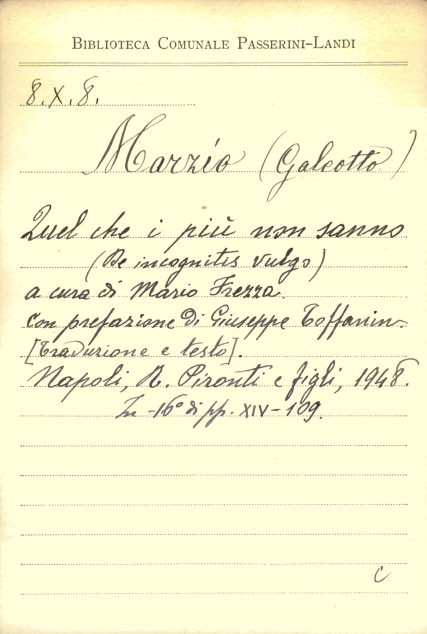 BIBLIOTECA COMUNALE PASSERINI-LANDI
8.X.8.
Marzio (Galeotto)
Quel che i più non sanno
(De incognitis vulgo)
a cura di Mario Frezza.
Con prefazione di Giuseppe Toffanin.
[Traduzione e testo].
Napoli, R. Pironti e figli, 1948.
In -16° di pp. XIV-109.
C